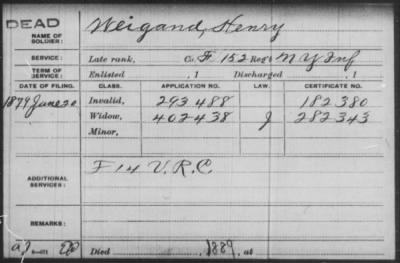 DEAD
NAME OF SOLDIER: Weigand, Henry
SERVICE: Late rank, Co. F. 152 Reg't N Y Inf
TERM OF SERVICE: Enlisted , 1 Discharged , 1
DATE OF FILING. CLASS. APPLICATION NO. LAW. CERTIFICATE NO.
1879 June 20 Invalid, 293 488 182.380
Widow, 402438 J 282343
Minor,
ADDITIONAL SERVICES: F 14 V.R.C.
REMARKS:
Died , 1889, at